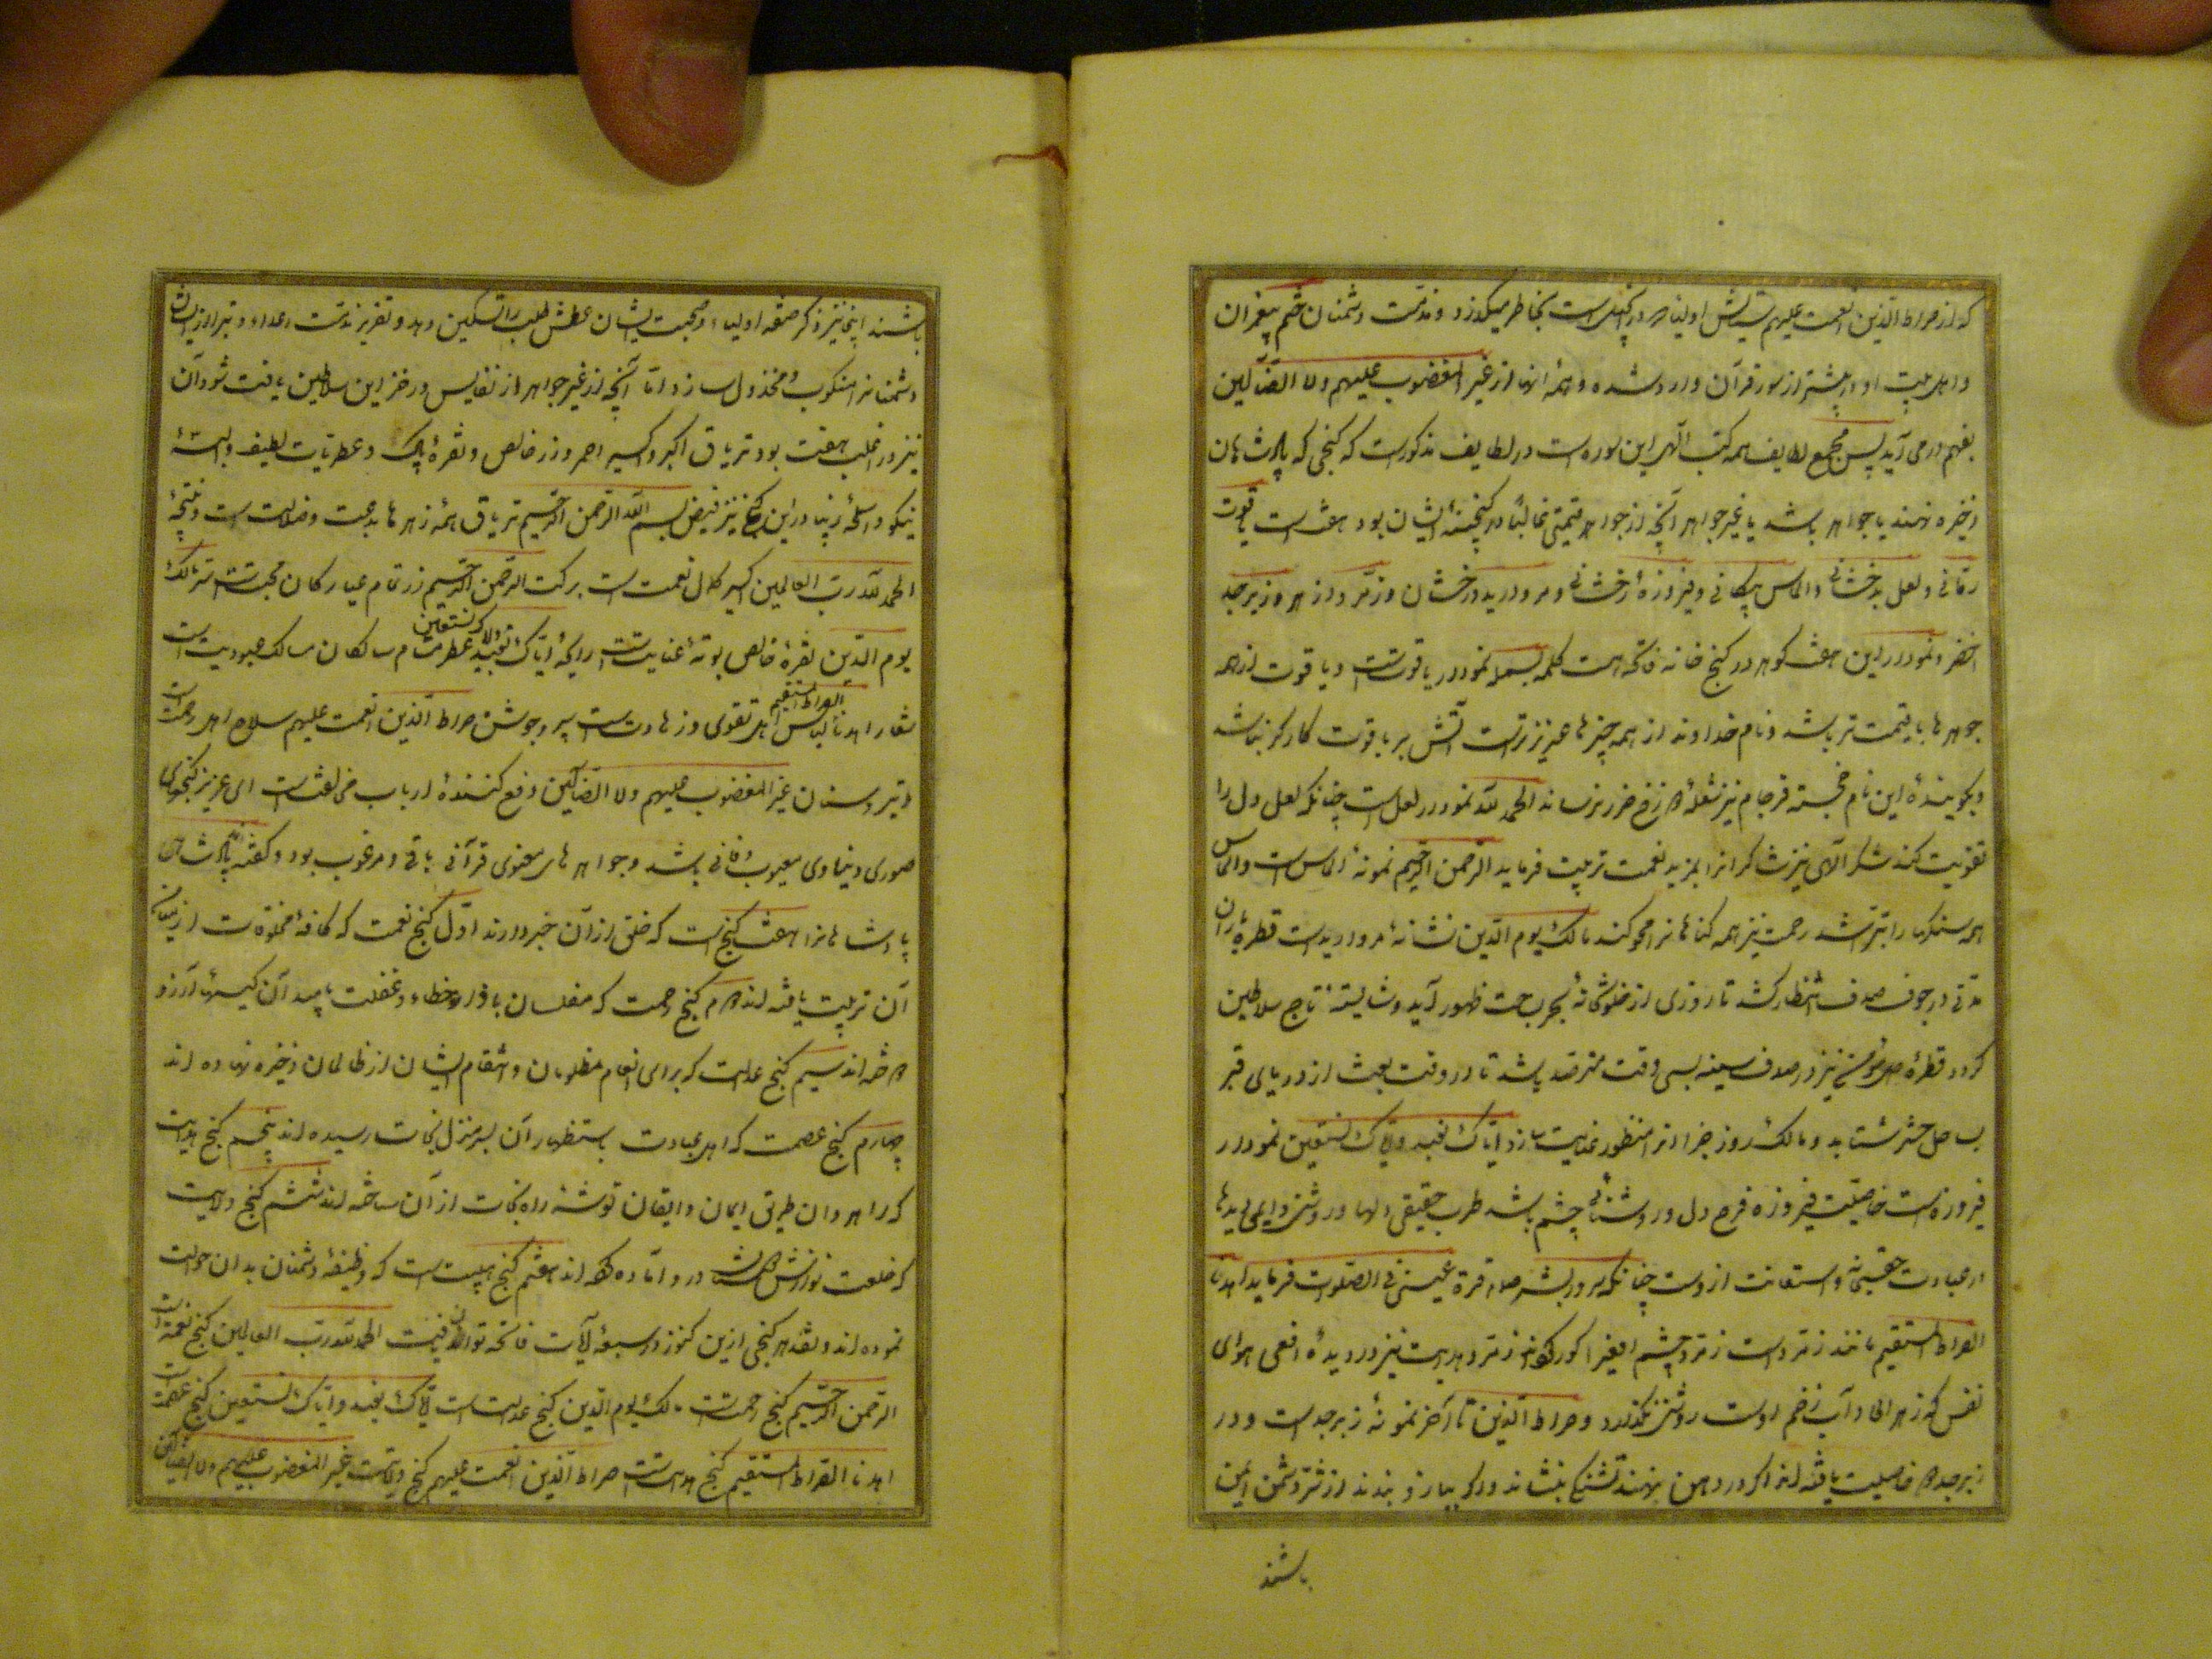 که از صراط الذین انعمت علیهم ستایش اولیا که در کتب است بخاطر میگذرد و مذمت دشمنان ختم پیغمبران
و اهل بیت او که بیشتر از سور قرآن وارد شده و همهٔ آنها از غیر المغضوب علیهم ولا الضآلین
بفهم درمی آید پس مجمع لطایف همه کتب الهی این سوره است در لطایف مذکورست که گنجی که پادشاهان
ذخیره نهند یا جواهر باشد یا غیر جواهر آنچه از جواهر قیمتی غالباً در گنجینهٔ ایشان بود هفت است یاقوت
رمّانی و لعل بدخشانی و الماس پیکانی و فیروزهٔ رخشانی و مروارید درخشان و زمرد ازهر و زبرجد
اخضر و نمودار این هفت گوهر در گنج خانه فاتحه است کلمه بسمله نمودار یاقوتست و یاقوت از همه
جوهرها باقیمت تر باشد و نام خداوند از همه چیزها عزیزترست آتش بر یاقوت کارگر نباشد
و گویندهٔ این نام خجسته فرجام نیز شعلهٔ دوزخ ضرر نرساند الحمد لله نمودار لعل است چنانکه لعل دل را
تقویت کند شکر الٓهی نیز شاکرانرا بمزید نعمت تربیت فرماید الرحمن الرحیم نمونهٔ الماس است و الماس
همه سنگها را تیز باشد رحمت نیز همه گناهانرا محو کند مالک یوم الدین نشانهٔ مروارید است قطرهٔ باران
مدتی در جوف صدف انتظار کشد تا روزی از خلوتخانهٔ بحر بساحت ظهور آید و شایستهٔ تاج سلاطین
گردد قطرهٔ نیز در صدف سینه بسی وقت مترصد باشد تا در وقت بعث از دریای قبر
بساحل حشر شتابد و مالک روز جزا او را منظور عنایت سازد ایاک نعبد و ایاک نستعین نمودار
فیروزه است خاصیت فیروزه فرح دل و روشنائی چشم باشد طرب حقیقی دلها و روشنی دایمی دیدها
از عبادت حق و استعانت ازوست چنانکه سرور بشر صلعم قرة عینی فی الصلوة فرماید اهدنا
الصراط المستقیم مانند زمرد است زمرد چشم افعی را کور گرداند زمرد هدایت نیز در دیدهٔ افعی هوای
نفس که زهر الم و آب زخم اوست روشنی نگذارد و صراط الذین تا آخر نمونهٔ زبرجد است و در
زبرجد خاصیت یافته اند اگر در دهن نهند تشنگی بنشاند و اگر بر بازو بندند از شر دشمن ایمن
باشند
باشند اینجا نیز ذکر صفهٔ اولیاء و محبت ایشان عطش طلب را تسکین دهد و تقریر مذمت اعداء و تبرا از ایشان
دشمنانرا منکوب و مخذول سازد امّا آنچه از غیر جواهر از نفایس در خزاین سلاطین یافت شود آن
نیز در اغلب هفت بود تریاق اکبر و اکسیر احمر و زر خالص و نقرهٔ پاک و عطریات لطیف و البسهٔ
نیکو و اسلحهٔ زیبا در این گنج نیز فیض بسم الله الرحمن الرحیم تریاق همهٔ زهرها بدعت و ضلالت است و نتیجهٔ
الحمد لله رب العالمین اکسیر کمال نعمت است برکت الرحمن الرحیم زر تمام عیار کان محبت است سر مالک
یوم الدین نقرهٔ خالص بوتهٔ عنایت است رایحهٔ ایاک نعبد و ایاک نستعین عطر مشام سالکان مسالک عبودیت است
شعار اهدنا الصراط المستقیم لباس اهل تقوی و زهادت است سپر و جوشن صراط الذین انعمت علیهم سلاح اهل رحمت است
و تیر و سنان غیر المغضوب علیهم ولا الضالین دفع کنندهٔ ارباب مخالفت است ای عزیز گنجهای
صوری دنیاوی معیوب و فانی باشد و جواهرهای معنوی قرآنی باقی و مرغوب بود و گفته
پادشاهانرا هفت گنج است که خلق از آن خبر دارند اوّل گنج نعمت که کافهٔ مخلوقات از
آن تربیت یافته اند دوم گنج رحمت که مفلسان بازار خطاء و غفلت بامید آن کیسهٔ آرزو
دوخته اند سیم گنج عدلست که برای انعام مظلومان و انتقام ایشان از ظالمان ذخیره نهاده اند
چهارم گنج عصمت که اهل عبادت باستظهار آن بسر منزل نجات رسیده اند پنجم گنج هدایت
که راهروان طریق ایمان و ایقان توشهٔ راه نجات از آن ساخته اند ششم گنج ولایت
که خلعت نوازش در او آماده کرده اند هفتم گنج هیبت است که وظیفهٔ دشمنان بدان حوالت
نموده اند و نقد هر گنجی ازین کنوز در سبعهٔ آیات فاتحه توان یافت الحمد لله رب العالمین گنج نعمت است
الرحمن الرحیم گنج رحمت است مالک یوم الدین گنج عدالت است ایاک نعبد و ایاک نستعین گنج عصمت است
اهدنا الصراط المستقیم گنج هدایت است صراط الذین انعمت علیهم گنج ولایت است غیر المغضوب علیهم ولا الضالین